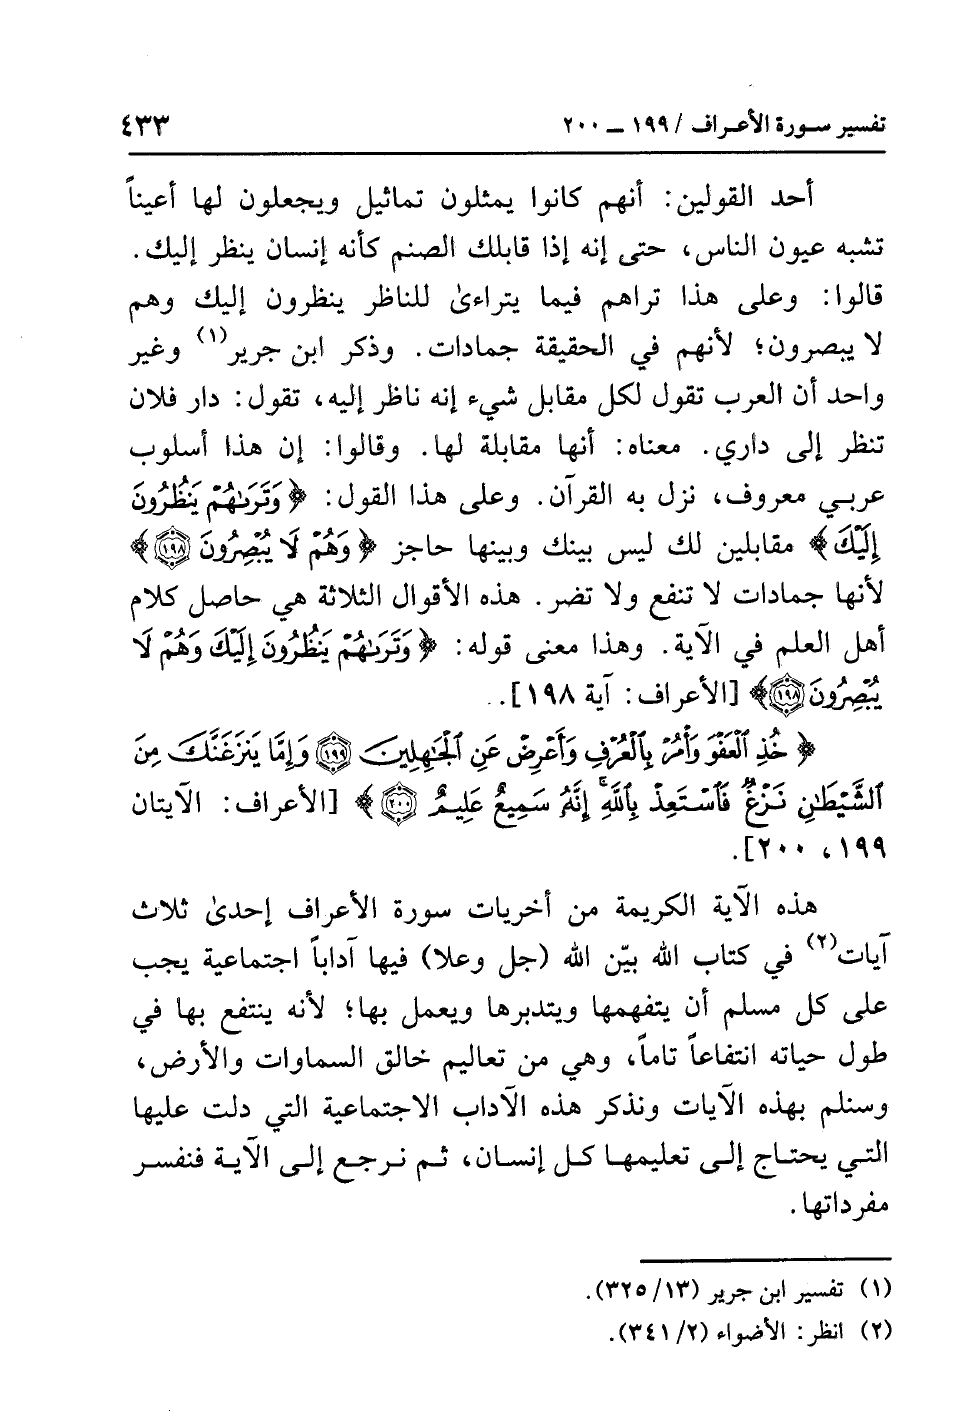 تفسير سورة الأعراف / ١٩٩ ـ ٢٠٠
٤٣٣
أحد القولين: أنهم كانوا يمثلون تماثيل ويجعلون لها أعيناً
تشبه عيون الناس، حتى إنه إذا قابلك الصنم كأنه إنسان ينظر إليك.
قالوا: وعلى هذا تراهم فيما يتراءىٰ للناظر ينظرون إليك وهم
لا يبصرون؛ لأنهم في الحقيقة جمادات. وذكر ابن جرير(١) وغير
واحد أن العرب تقول لكل مقابل شيء إنه ناظر إليه، تقول: دار فلان
تنظر إلى داري. معناه: أنها مقابلة لها. وقالوا: إن هذا أسلوب
عربي معروف، نزل به القرآن. وعلى هذا القول: ﴿وَتَرَىٰهُمْ يَنظُرُونَ
إِلَيْكَ﴾ مقابلين لك ليس بينك وبينها حاجز ﴿وَهُمْ لَا يُبْصِرُونَ ١٩٨﴾
لأنها جمادات لا تنفع ولا تضر. هذه الأقوال الثلاثة هي حاصل كلام
أهل العلم في الآية. وهذا معنى قوله: ﴿وَتَرَىٰهُمْ يَنظُرُونَ إِلَيْكَ وَهُمْ لَا
يُبْصِرُونَ ١٩٨﴾ [الأعراف: آية ١٩٨]..
﴿خُذِ ٱلْعَفْوَ وَأْمُرْ بِٱلْعُرْفِ وَأَعْرِضْ عَنِ ٱلْجَٰهِلِينَ ١٩٩ وَإِمَّا يَنزَغَنَّكَ مِنَ
ٱلشَّيْطَٰنِ نَزْغٌ فَٱسْتَعِذْ بِٱللَّهِ ۚ إِنَّهُۥ سَمِيعٌ عَلِيمٌ ٢٠٠﴾ [الأعراف: الآيتان
١٩٩، ٢٠٠].
هذه الآية الكريمة من أخريات سورة الأعراف إحدىٰ ثلاث
آيات(٢) في كتاب الله بيّن الله (جل وعلا) فيها آداباً اجتماعية يجب
على كل مسلم أن يتفهمها ويتدبرها ويعمل بها؛ لأنه ينتفع بها في
طول حياته انتفاعاً تاماً، وهي من تعاليم خالق السماوات والأرض،
وسنلم بهذه الآيات ونذكر هذه الآداب الاجتماعية التي دلت عليها
التي يحتاج إلى تعليمها كل إنسان، ثم نرجع إلى الآية فنفسر
مفرداتها.
(١) تفسير ابن جرير (١٣/ ٣٢٥).
(٢) انظر: الأضواء (٢/ ٣٤١).